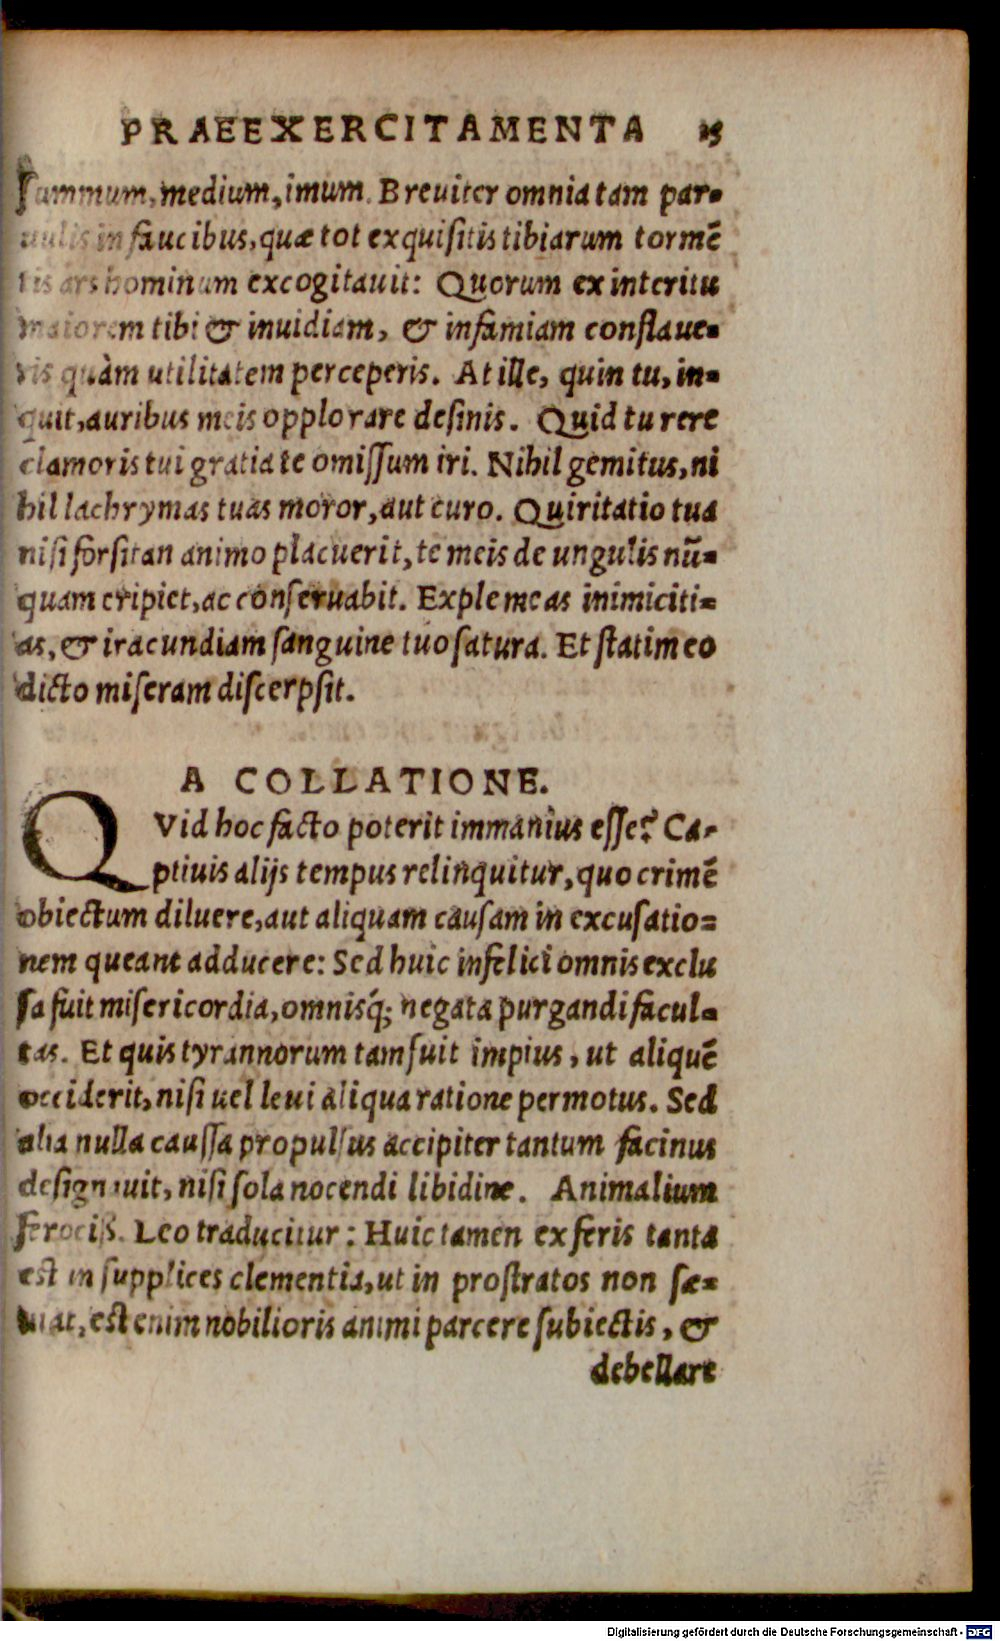 PRAEEXERCITAMENTA 25
summum, medium, imum. Breuiter omnia tam par-
uulis in faucibus, quæ tot exquisitis tibiarum tormē
tis ars hominum excogitauit: Quorum ex interitu
maiorem tibi & inuidiam, & infamiam conflaue-
ris quàm utilitatem perceperis. At ille, quin tu, in-
quit, auribus meis opplorare desinis. Quid tu rere
clamoris tui gratia te omissum iri. Nihil gemitus, ni
hil lachrymas tuas moror, aut curo. Quiritatio tua
nisi forsitan animo placuerit, te meis de ungulis nū-
quam eripiet, ac conseruabit. Exple meas inimiciti-
as, & iracundiam sanguine tuo satura. Et statim eo
dicto miseram discerpsit.
A COLLATIONE.
QVid hoc facto poterit immanius esse? Ca-
ptiuis alijs tempus relinquitur, quo crimē
obiectum diluere, aut aliquam causam in excusatio-
nem queant adducere: Sed huic infelici omnis exclu
sa fuit misericordia, omnisq́; negata purgandi facul-
tas. Et quis tyrannorum tam fuit impius, ut aliquē
occiderit, nisi uel leui aliqua ratione permotus. Sed
alia nulla caussa propulsus accipiter tantum facinus
designauit, nisi sola nocendi libidine. Animalium
ferociß. Leo traducitur: Huic tamen ex feris tanta
est in supplices clementia, ut in prostratos non sæ-
uiat, est enim nobilioris animi parcere subiectis, &
debellare
Digitalisierung gefördert durch die Deutsche Forschungsgemeinschaft - DFG